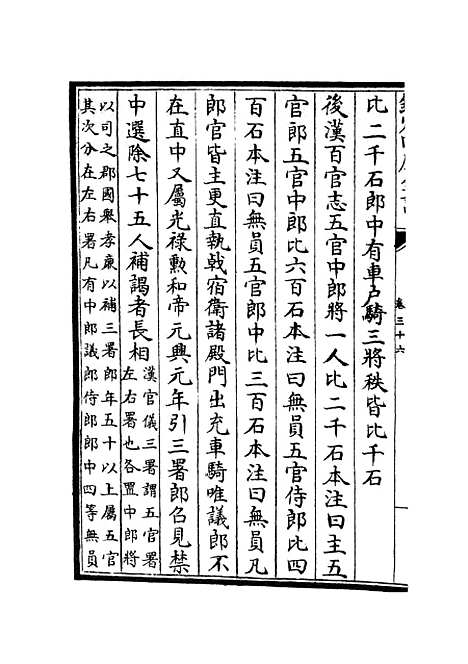 卷三十六
比二千石郎中有車戶騎三將秩皆比千石
後漢百官志五官中郎將一人比二千石本注曰主五
官郎五官中郎比六百石本注曰無員五官侍郎比四
百石本注曰無員五官郎中比三百石本注曰無員凡
郎官皆主更直執戟宿衛諸殿門出充車騎唯議郎不
在直中又屬光祿勲和帝元興元年引三署郎召見禁
中選除七十五人補謁者長相
漢官儀三署謂五官署
左右署也各置中郎將
以司之郡國舉孝㢘以補三署郎年五十以上屬五官
其次分在左右署凡有中郎議郎侍郎郎中四等無員